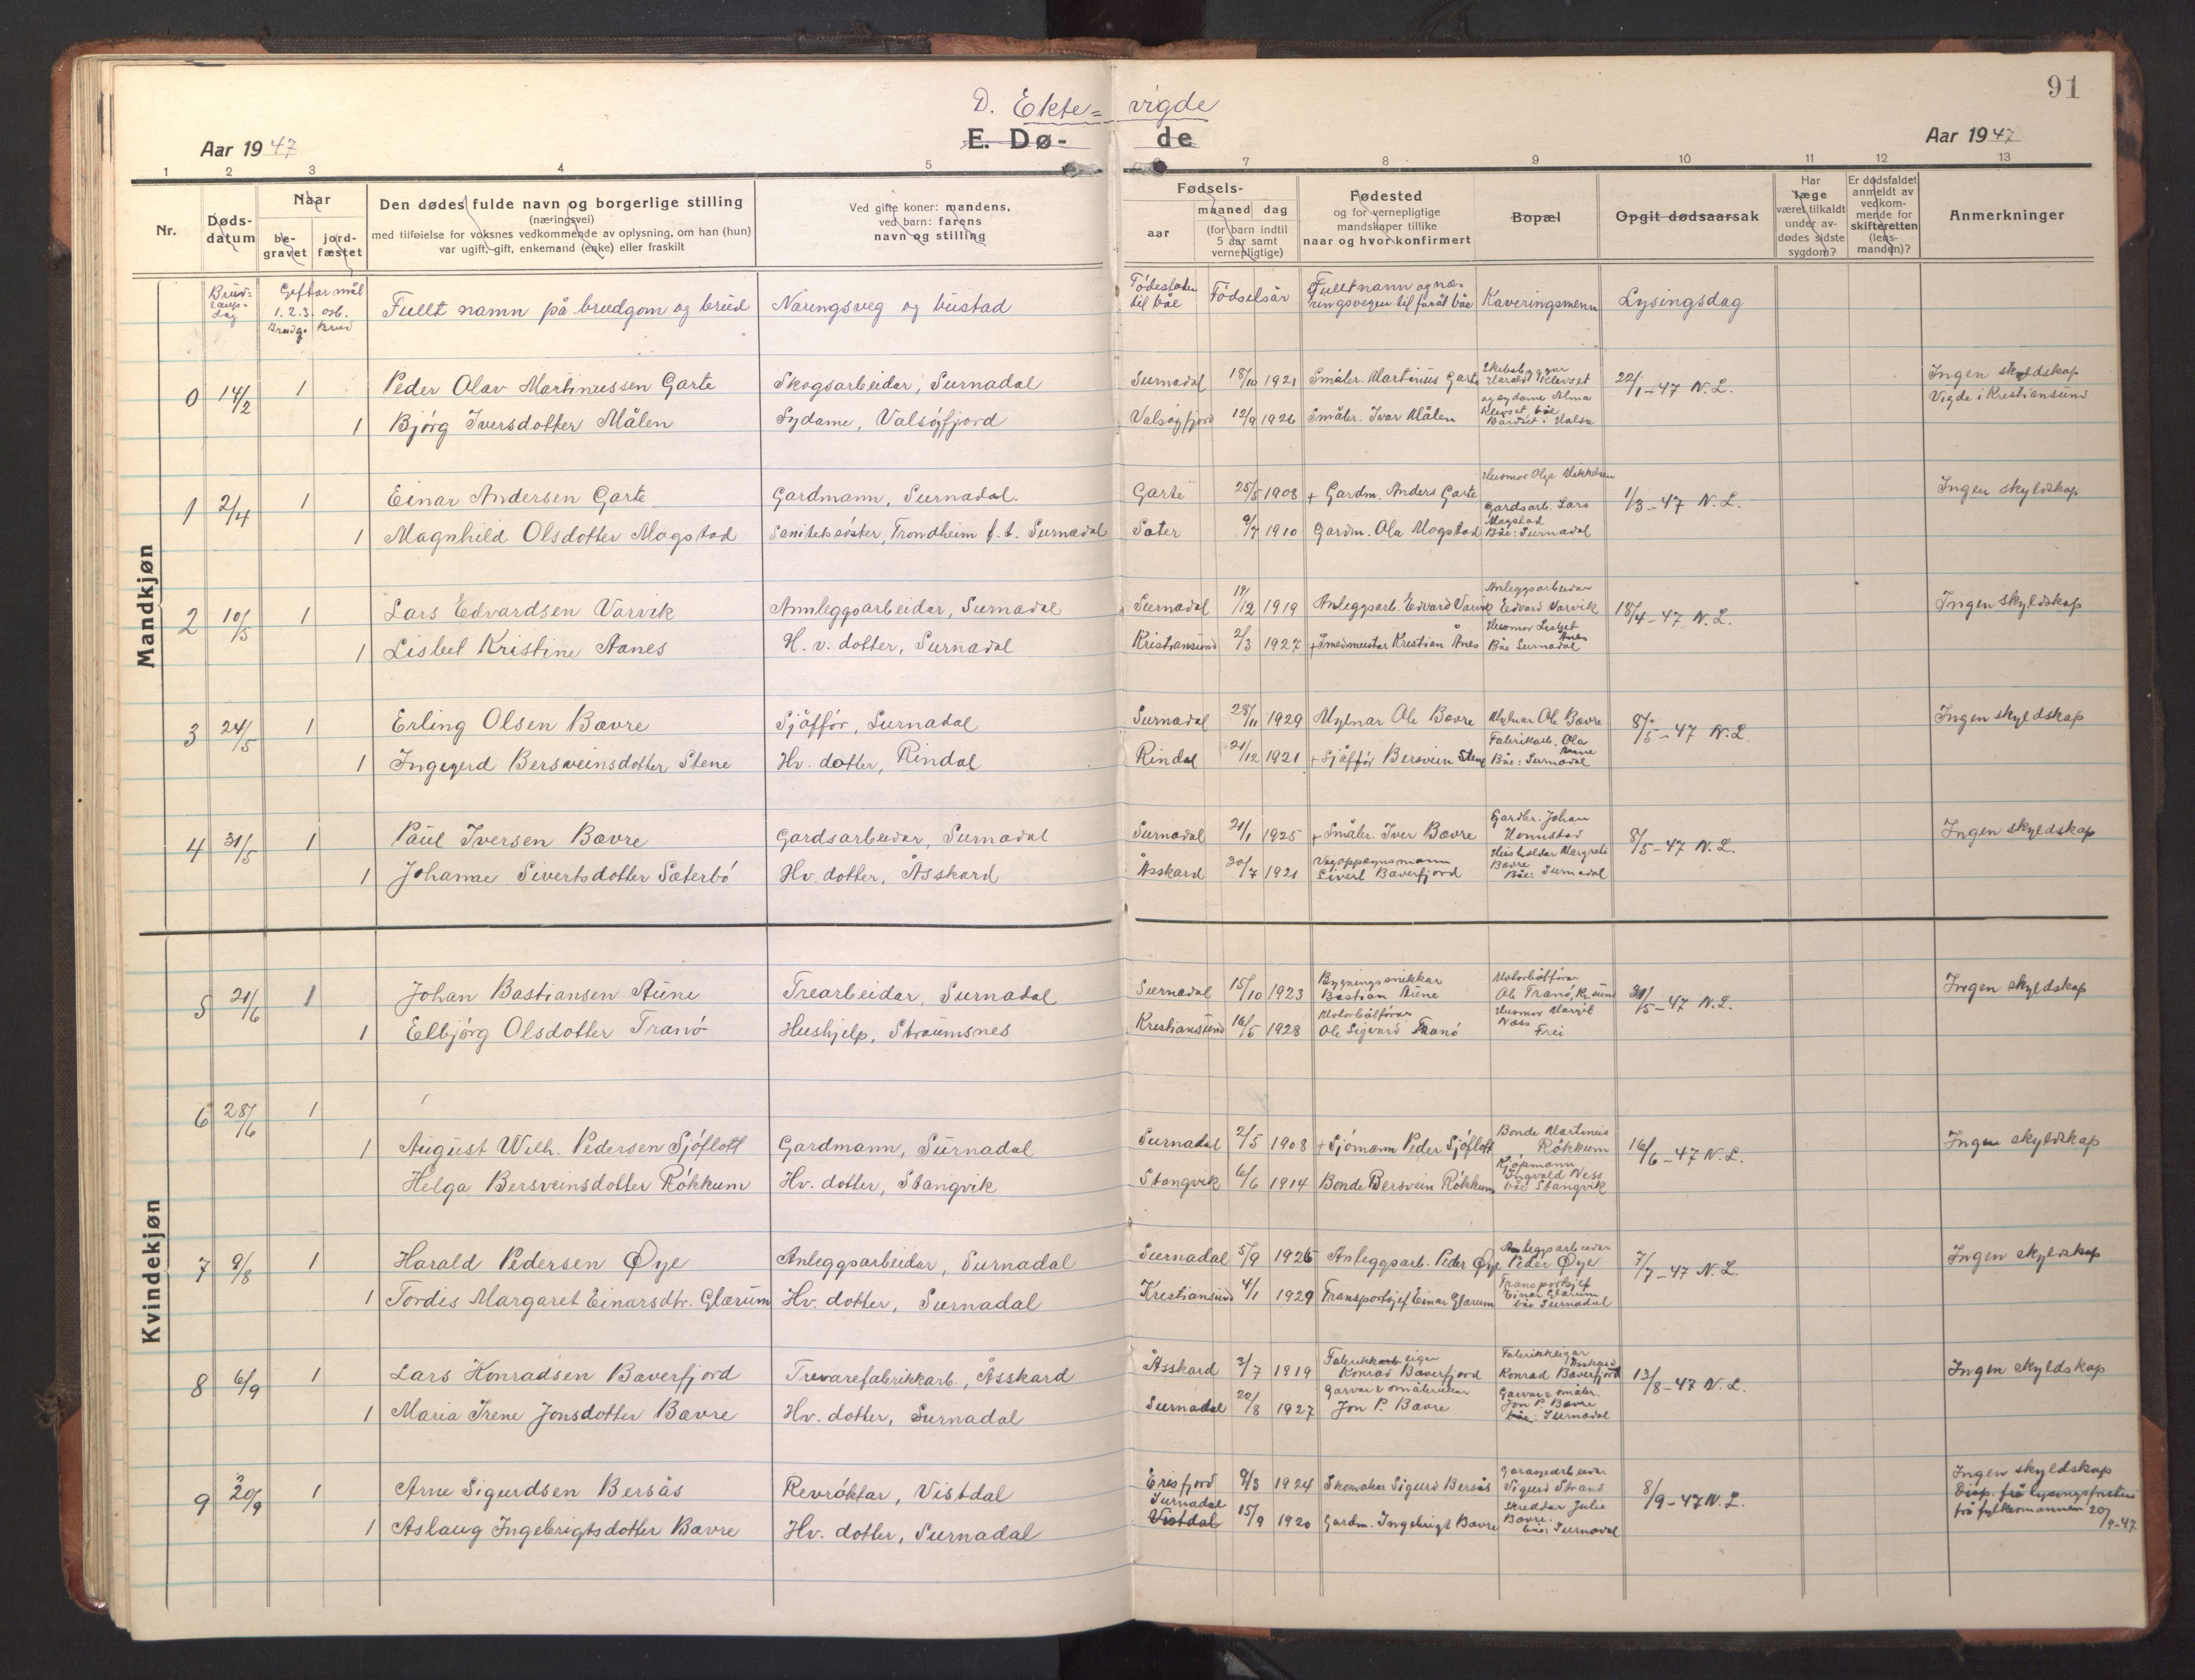 91
D. Ekte= vigde
E. Dø- de
Aar 1947
Aar 1947
1 2 3 4 5 6 7 8 9 10 11 12 13
Nr.
Døds-
datum
Naar
be-
gravet
jord-
fæstet
Den dødes fulde navn og borgerlige stilling
(næringsvei)
med tilføielse for voksnes vedkommende av oplysning, om han (hun)
var ugift, gift, enkemand (enke) eller fraskilt
Ved gifte koner: mandens,
ved barn: farens
navn og stilling
Fødsels-
aar
maaned dag
(for barn indtil
5 aar samt
vernepligtige)
Fødested
og for vernepligtige
mandskaper tillike
naar og hvor konfirmert
Bopæl
Opgit dødsaarsak
Har
læge
været tilkaldt
under av-
dødes sidste
sygdom?
Er dødsfaldet
anmeldt av
vedkom-
mende for
skifteretten
(lens-
manden)?
Anmerkninger
Brud=
laups-
dag
Giftarmål
1. 2. 3. osb.
Brudg. Brud
Fullt namn på brudgom og brud
Næringsveg og bustad
Fødestaden
til båe
Fødselsår
Fullt namn og næ-
ringsvegen til faråt båe
Kaveringsmenn
Lysingsdag
Mandkjøn
0 14/2 1 Peder Olav Martinussen Garte Skogsarbeidar, Surnadal Surnadal 18/10 1921 Småbr. Martinus Garte 22/1-47 N.L. Ingen skyldskap
Vigde i Kristiansund
Harald Klevset
og sydame Alma
Klevset, båe
Bårdset i Halsa
1 Bjørg Iversdotter Målen Sydame, Valsøyfjord Valsøyfjord 12/9 1926 Småbr. Ivar Målen
1 2/4 1 Einar Andersen Garte Gardmann, Surnadal. Garte 25/5 1908 + Gardm. Anders Garte Husmor Olga Mikkelsen 1/3-47 N.L. Ingen skyldskap
Gardsarb. Lars
Mogstad
Båe: Surnadal
1 Magnhild Olsdotter Mogstad Sanitetssøster, Trondheim f.t. Surnadal Sæter 9/7 1910 Gardm. Ola Mogstad
2 10/5 1 Lars Edvardsen Varvik Annleggsarbeidar, Surnadal Surnadal 19/12 1919 Anleggsarb. Edvard Varvik Anleggsarbeidar
Edvard Varvik 18/4-47 N.L. Ingen skyldskap
Husmor Lisbet
Ånes
Båe Surnadal
1 Lisbet Kristine Aanes H.v. dotter, Surnadal Kristiansund 2/3 1927 + Smedmeistar Kristian Ånes
3 24/5 1 Erling Olsen Bævre Sjåffør, Surnadal Surnadal 28/11 1929 Mylnar Ole Bævre Mylnar Ole Bævre 8/5-47 N.L. Ingen skyldskap
Fabrikarb. Ola
Aune
Båe: Surnadal
1 Ingegerd Bersveinsdotter Stene Hv. dotter, Rindal Rindal 21/12 1921 + Sjåffør Bersvein Stene
4 31/5 1 Paul Iversen Bævre Gardsarbeidar, Surnadal Surnadal 21/1 1925 + Småbr. Iver Bævre Gardbr. Johan
Honnstad 8/5-47 N.L. Ingen skyldskap
Husholdar Margrete
Bævre
Båe: Surnadal
1 Johanne Sivertsdotter Sæterbø Hv. dotter, Åsskard Åsskard 20/7 1921 Vegoppsynsmann
Sivert Bæverfjord
5 21/6 1 Johan Bastiansen Aune Trearbeidar, Surnadal Surnadal 15/10 1923 Bygningssnikkar
Bastian Aune Motorbåtførar
Ole Tranø, Kr.sund 31/5-47 N.L. Ingen skyldskap
Husmor Margit
Næss Frei
1 Elbjørg Olsdotter Tranø Hushjelp, Straumsnes Kristiansund 16/5 1928 Motorbåtførar
Ole Sigvard Tranø
6 28/6 1
1 August Wilh. Pedersen Sjøflott Gardmann, Surnadal Surnadal 2/5 1908 + Sjømann Peder Sjøflott Bonde Martinus
Røkkum 16/6-47 N.L. Ingen skyldskap
Kjøpmann
Ingvald Ness
båe Stangvik
Helga Bersveinsdotter Røkkum Hv. dotter, Stangvik Stangvik 6/6 1914 Bonde Bersvein Røkkum
Kvindekjøn
7 9/8 1 Harald Pedersen Øye Anleggsarbeidar, Surnadal Surnadal 5/9 1926 Anleggsarb. Peder Øye Anleggsarbeidar
Peder Øye 7/7-47 N.L. Ingen skyldskap
Transportsjef
Einar Glærum
båe Surnadal
1 Tordis Margaret Einarsdtr. Glærum Hv. dotter, Surnadal Kristiansund 4/1 1929 Transportsjef Einar Glærum
8 6/9 1 Lars Konradsen Bæverfjord Trevarefabrikkarb., Åsskard Åsskard 3/7 1919 Fabrikkeigar
Konrad Bæverfjord Fabrikkeigar
Åsskard
Konrad Bæverfjord 13/8-47 N.L. Ingen skyldskap
Garvar & småbr.
Jon P. Bævre
båe: Surnadal
1 Maria Irene Jonsdotter Bævre Hv. dotter, Surnadal Surnadal 22/8 1927 Garvar & småbrukar
Jon P. Bævre
9 20/9 1 Arne Sigurdsen Bersås Revrøktar, Vistdal Erisfjord 9/3 1924 Skomakar Sigurd Bersås
Sigurd Strand 8/9-47 N.L. Ingen skyldskap
Disp. frå lysingsfristen
frå fylkesmannen 20/9-47
Skreddar Julie
Bævre.
båe: Surnadal
1 Aslaug Ingebrigtsdotter Bævre Hv. dotter, Surnadal Surnadal
Vistdal 15/9 1920 Gardm. Ingebrigt Bævre